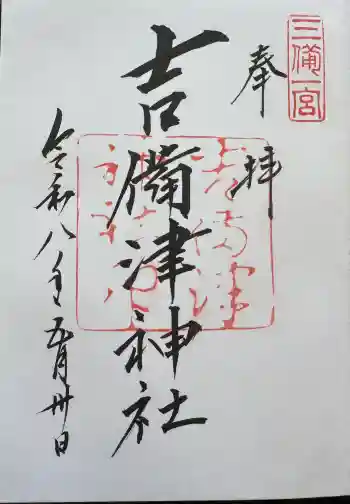 三備一宮
奉拝
吉備津神社
令和八年五月卅日